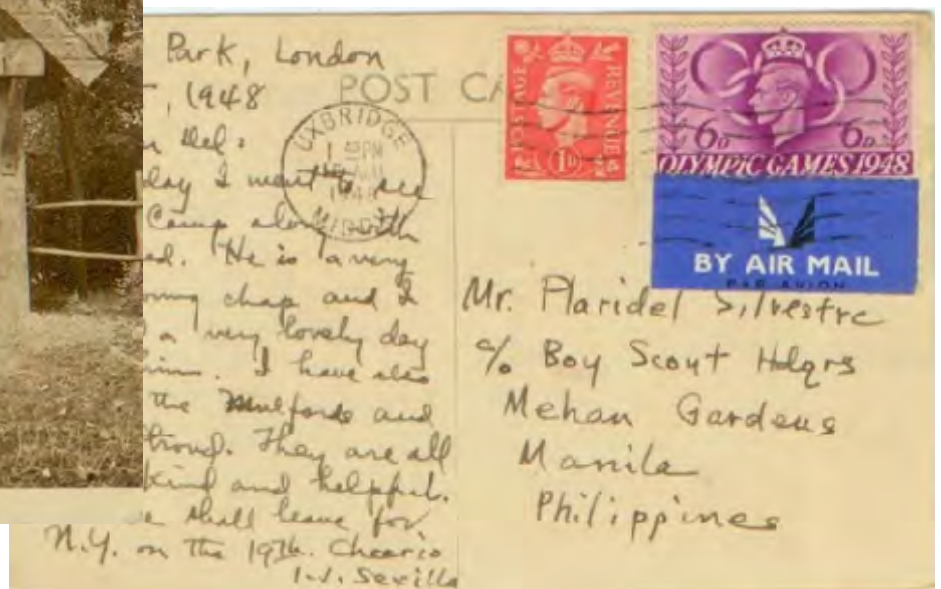 Park, London
, 1948
POST CA
Del:
day I went to see
Camp along with
ed. He is a very
chap and I
a very lovely day
him. I have also
the Mulfords and
troud. They are all
kind and helpful.
e shall leave for
N.Y. on the 19th. Cheerio
I.V. Sevilla
UXBRIDGE
1948
MIDDX
POSTAGE
REVENUE
1D
6D 6D
OLYMPIC GAMES 1948
BY AIR MAIL
PAR AVION
Mr. Plaridel Silvestre
c/o Boy Scout Hdqrs
Mehan Gardens
Manila
Philippines